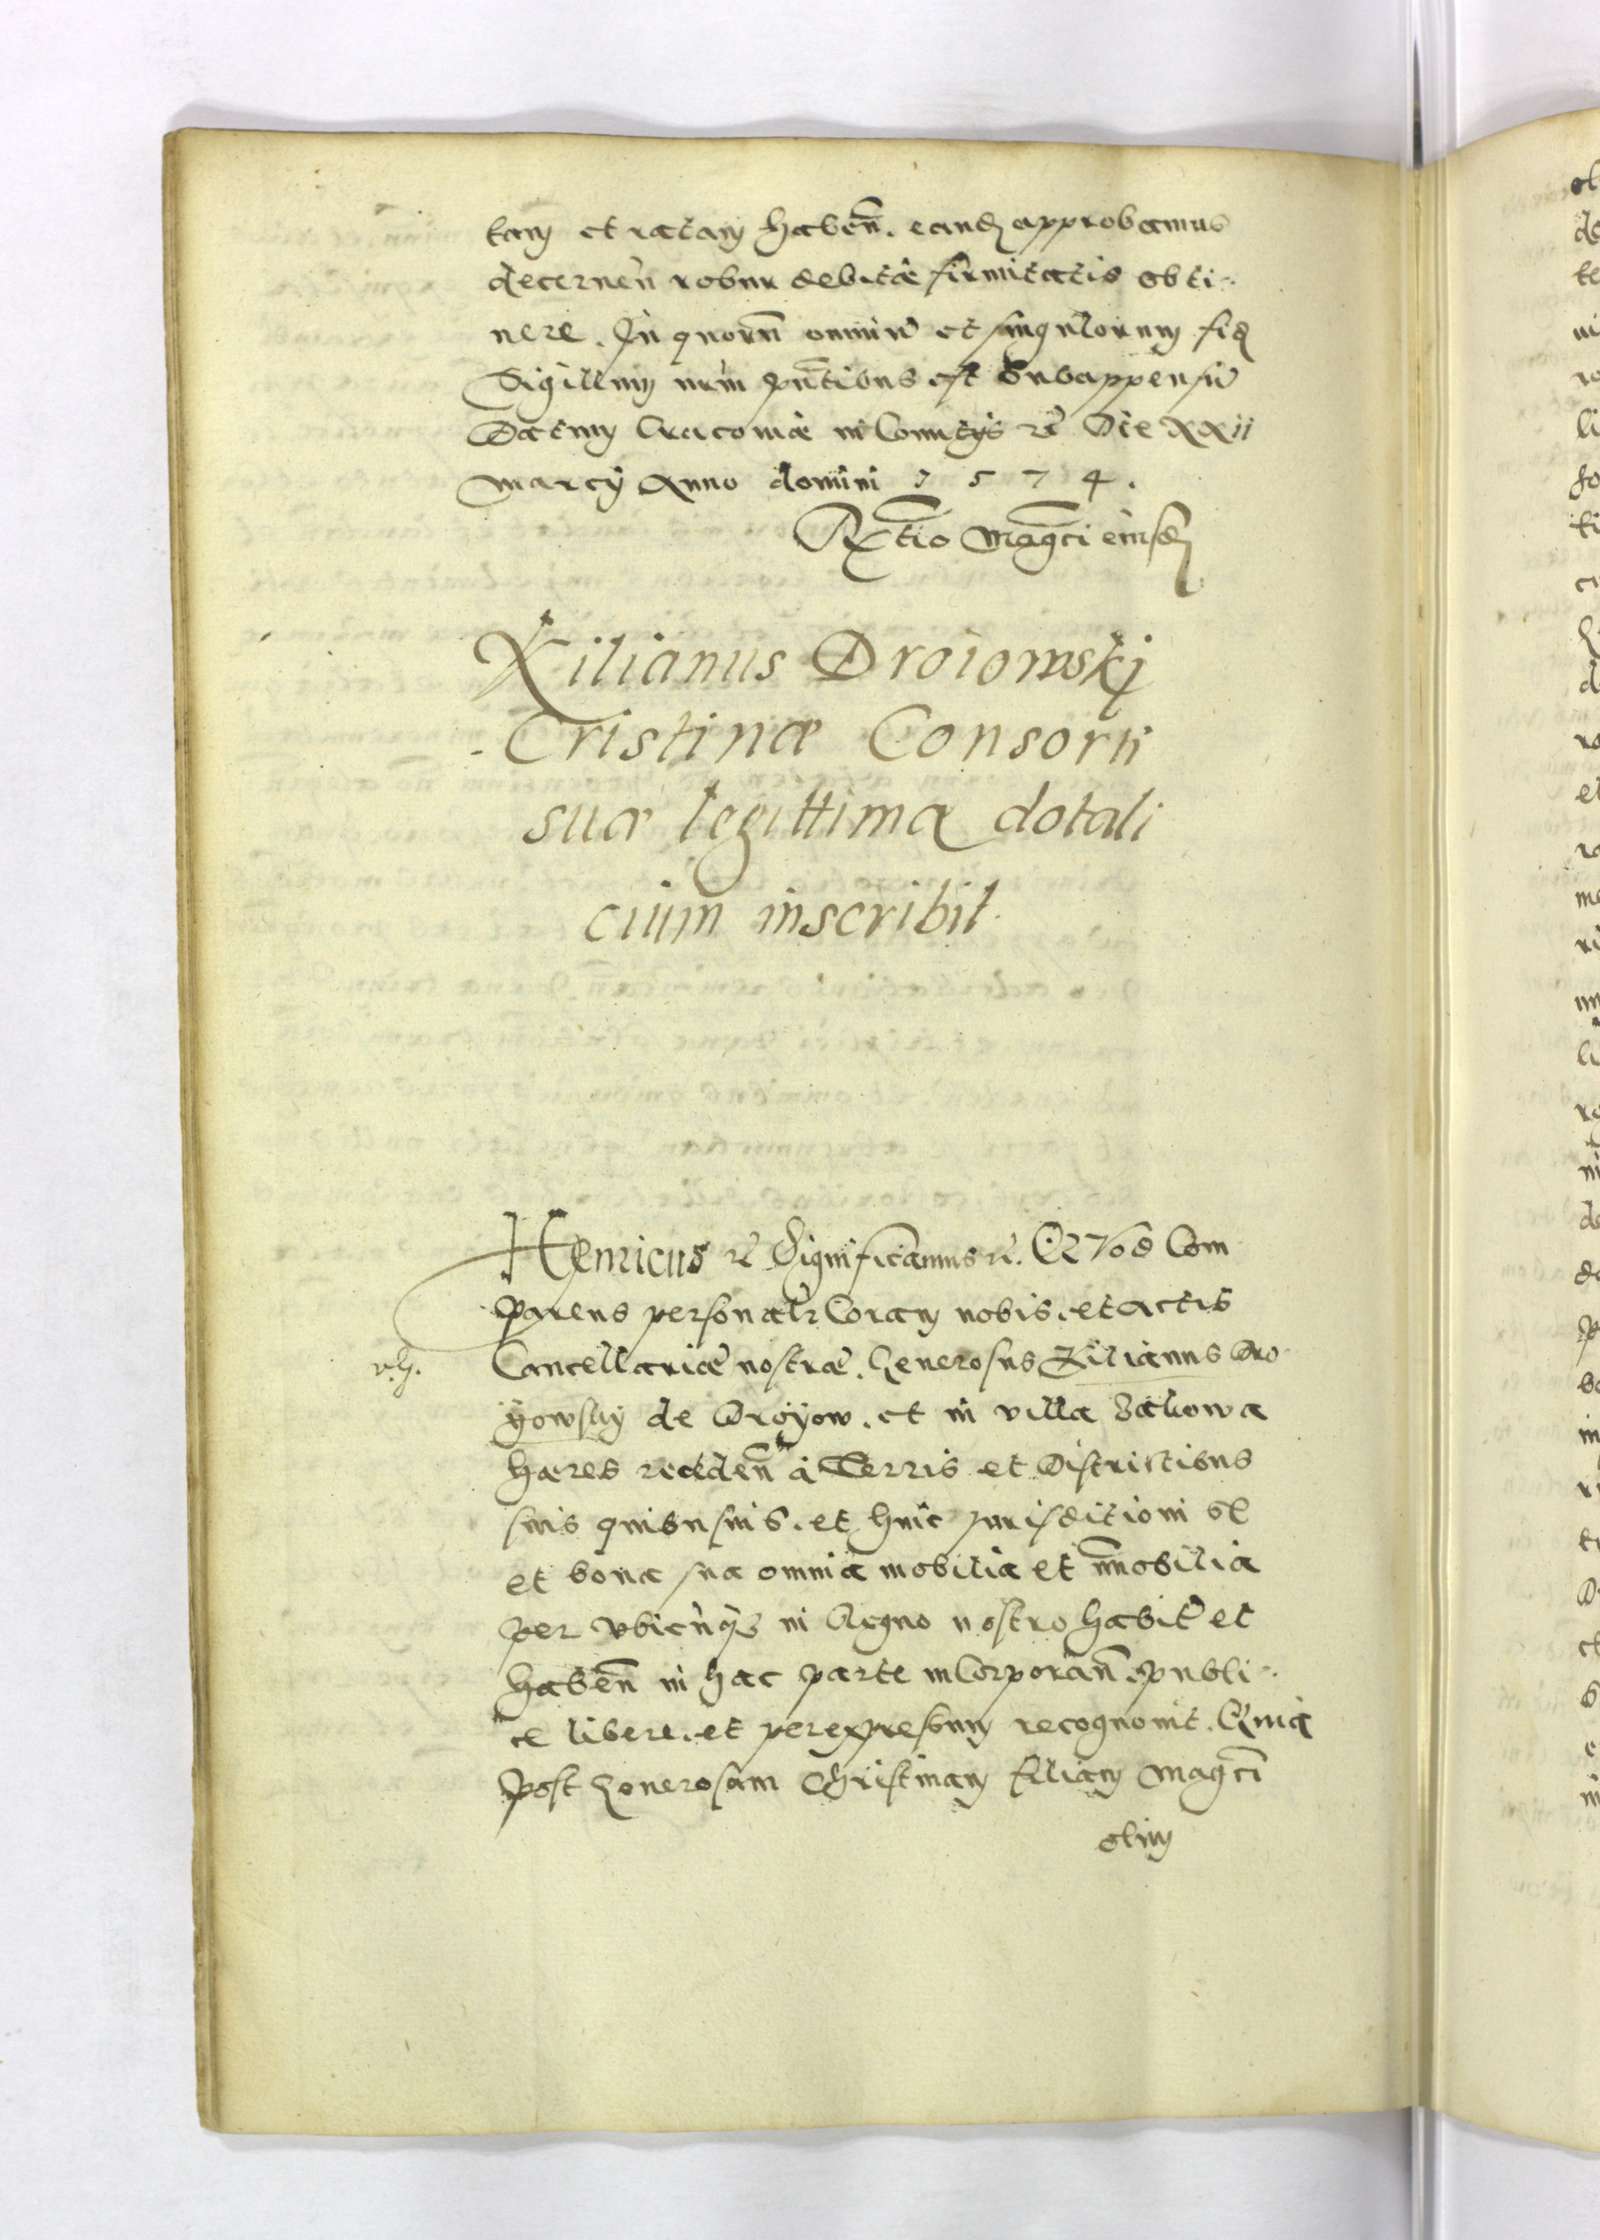 tam et ratam haben̄. eand approbamus
decernen̄ robur debitæ firmitatis obti-
nere. In quorū omniū et singulorum fid
Sigillum nrm pn̄tibus est Subappensū
Datum Cracoviæ in Comitys rc̄ Die xxii
Marcy Anno domini 1574.
R̄tio Magci eiusd
Kilianus Droiowskj
Cristinæ Consorti
suæ legittimæ dotali
cium inscribit.
Henricus rc̄ Significamus rc̄. Quod Com
parens personalr Coram nobis. et actis
Cancellariæ nostræ. Generosus Kilianus Dro-
yowsky de Droyow. et in villa
hæres receden̄ à Terris et Districtibus
suis quibusuis. et huic Jurisditioni se
et bona sua omnia mobilia et im̄obilia
per vbicunq in Regno nostro habit et
haben̄ in hac parte inCorporan̄. publi-
ce libere. et per expressum recognovit. Quia
Post Generosam Christinam filiam Magci
olim